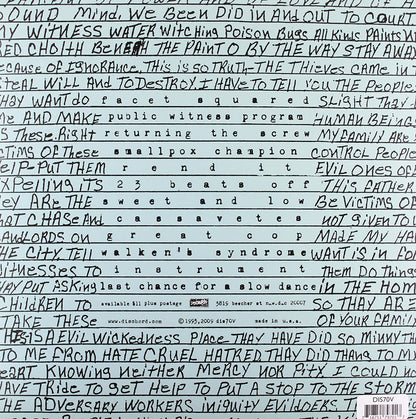 OUND MIND. WE BEEN DID IN AND OUT TO COURT
MY WITNESS WATER WITCHING POISON BUGS ALL KINDS PAINTS W
RED CHOLTH BENEATH THE PAINT O BY THE WAY STAY AWA
ECAUSE OF IGNORANCE. THIS IS SO TRUTH-THE THIEVES CAME IN
STEAL WILL AND TO DESTROY. I HAVE TO TELL YOU THE PEOPLE
THAY WANT DO facet squared SLIGHT THAY
ME AND MAKE public witness program HUMAN BEINGS
S THESE. RIGHT returning the screw MY FAMILY ARE
CTIMS OF THESE smallpox champion CONTROL PEOPLE
HELP PUT THEM rend it EVIL ONES OF
XPELLING ITS 23 beats off THIS FATHER
HEY ARE THE sweet and low BE VICTIMS OF
HAT CHASE AND cassavetes NOT GIVEN TO
LANDLORDS ON great cop MADE MY HA
THE CITY TELL walken's syndrome WANT IS IN FO
WITNESSES TO instrument THEM DO THING
WAY PUT ASKING last chance for a slow dance IN THE HOM
CHILDREN TO available $11 plus postage dischord 5819 beecher st n.w.d.c 20007 SO THAY ARE
TAKE THESE www.dischord.com ©1993,2009 dis70V made in u.s.a. OF YOUR FAMILY
THIS IS A EVIL WICKEDNESS PLACE THAY HAVE DID SO MINNY
TO ME FROM HATE CRUEL HATRED THAY DID THANG TO M
HEART KNOWING NEITHER MERCY NOR PITY I COULD
HAVE TRIDE TO GET HELP TO PUT A STOP TO THE STORM
THE ADVERSARY WORKERS INIQUITY EVILDOERS TH
DIS70V